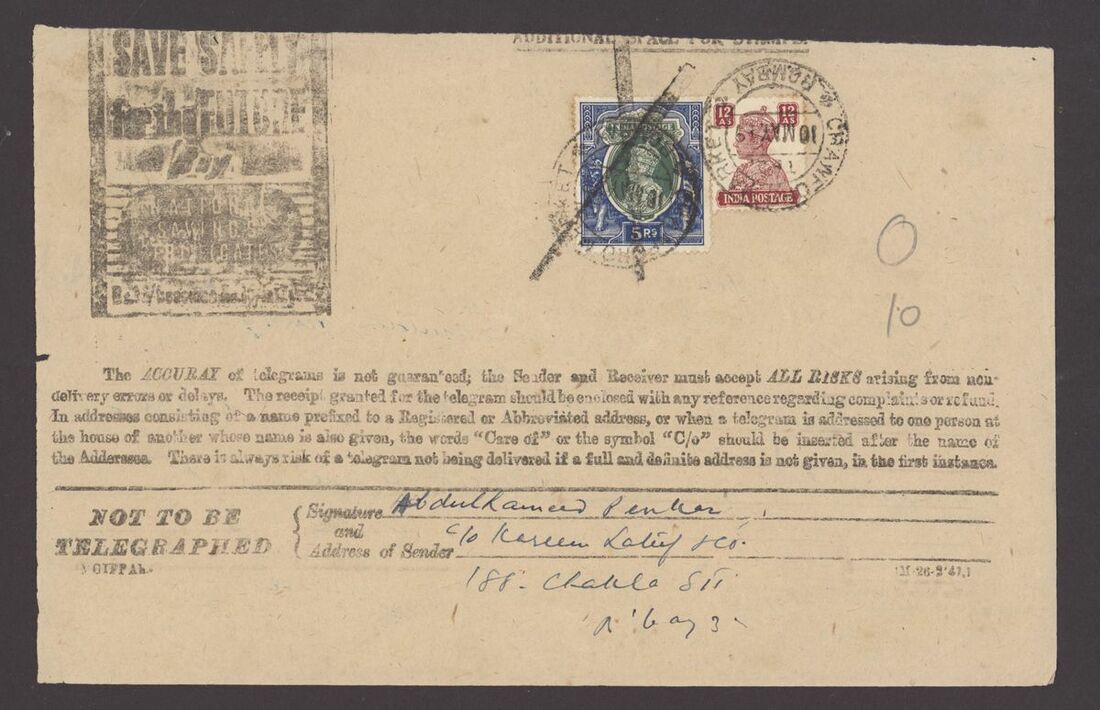 ADDITIONAL SPACE FOR STAMPS.
SAVE SAFELY
for the FUTURE
INDIA POSTAGE
5 Rs
12 As
12 As
INDIA POSTAGE
CRAWFORD MARKET
BOMBAY
10 MAY
The ACCURAY of telegrams is not guaranteed; the Sender and Receiver must accept ALL RISKS arising from non-
delivery errors or delays. The receipt granted for the telegram should be enclosed with any reference regarding complaints or refund.
In addresses consisting of a name prefixed to a Registered or Abbreviated address, or when a telegram is addressed to one person at
the house of another whose name is also given, the words "Care of" or the symbol "C/o" should be inserted after the name of
the Adderssee. There is always risk of a telegram not being delivered if a full and definite address is not given, in the first instance.
NOT TO BE
TELEGRAPHED
Signature
and
Address of Sender
Abdulhameed
c/o Kareem Latif & Co.
188- Chakla St
B'bay 3
GIPPAh.
0
10